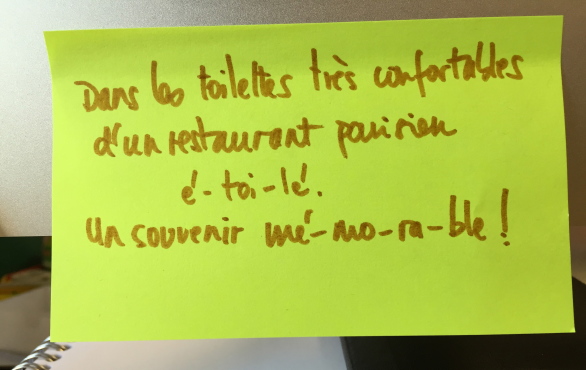 Dans les toilettes très confortables
d'un restaurant parisien
é-toi-lé.
un souvenir mé-mo-ra-ble !